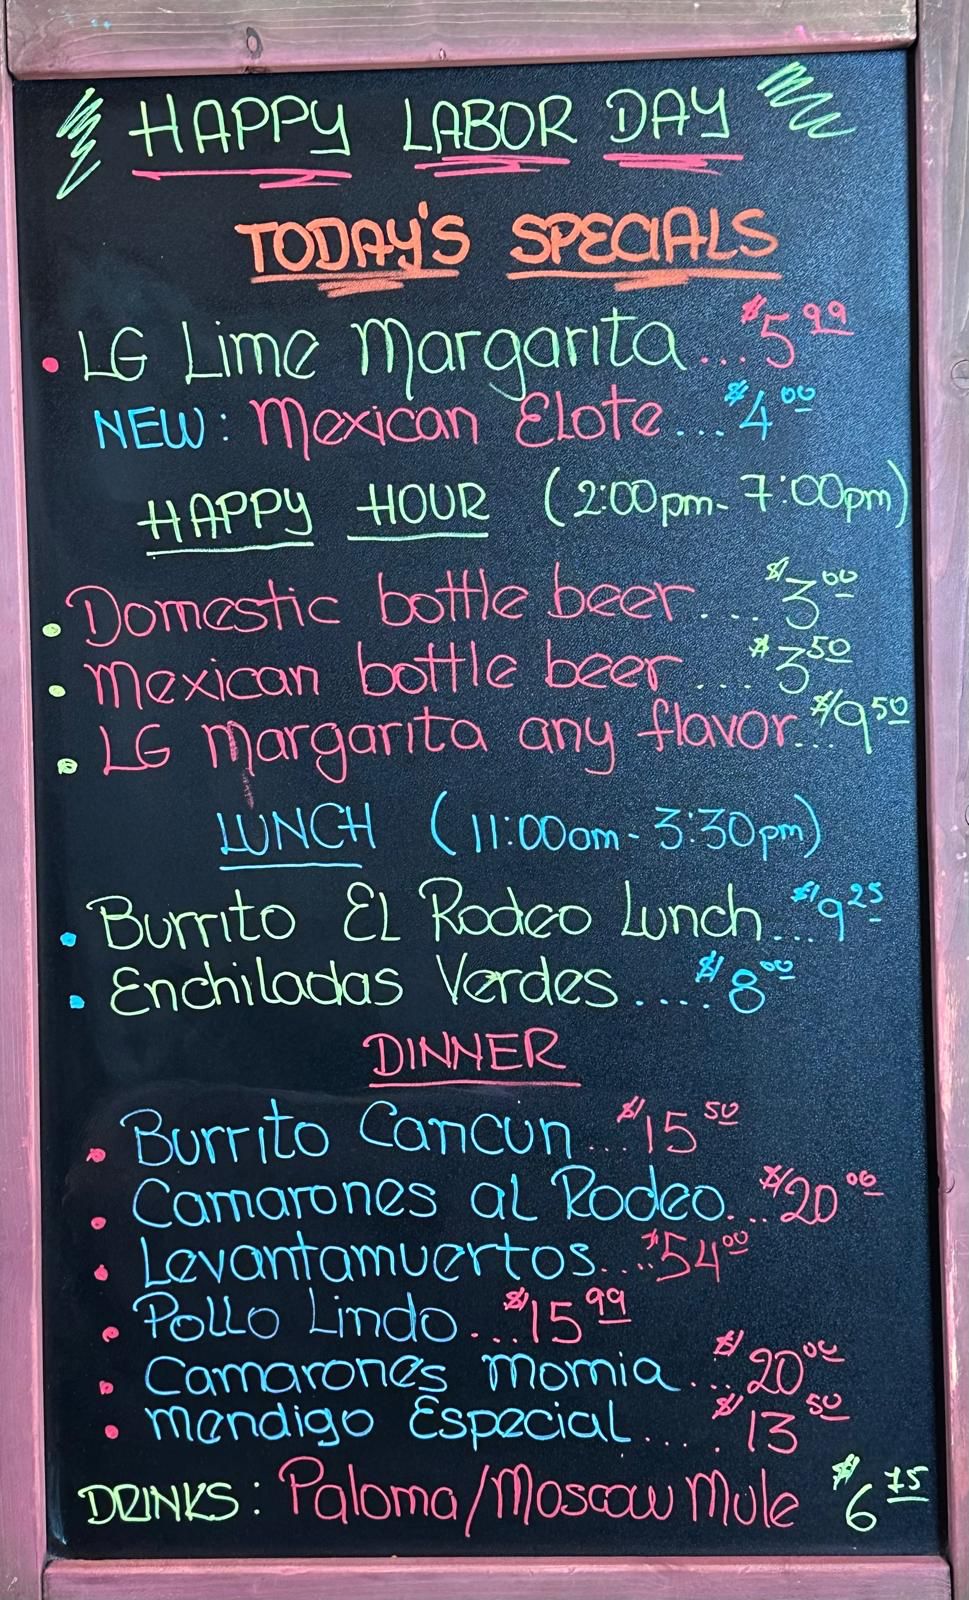 HAPPY LABOR DAY
TODAY'S SPECIALS
• LG Lime Margarita...$5.99
NEW: Mexican Elote...$4.00
HAPPY HOUR (2:00pm-7:00pm)
• Domestic bottle beer....$3.00
• Mexican bottle beer....$3.50
• LG Margarita any flavor...$9.50
LUNCH (11:00am-3:30pm)
• Burrito El Rodeo Lunch...$9.25
• Enchiladas Verdes.....$8.00
DINNER
• Burrito Cancun...$15.50
• Camarones al Rodeo...$20.00
• Levantamuertos....$54.00
• Pollo Lindo...$15.99
• Camarones momia...$20.00
• mendigo Especial.....$13.50
DRINKS: Paloma/Moscow Mule $6.75